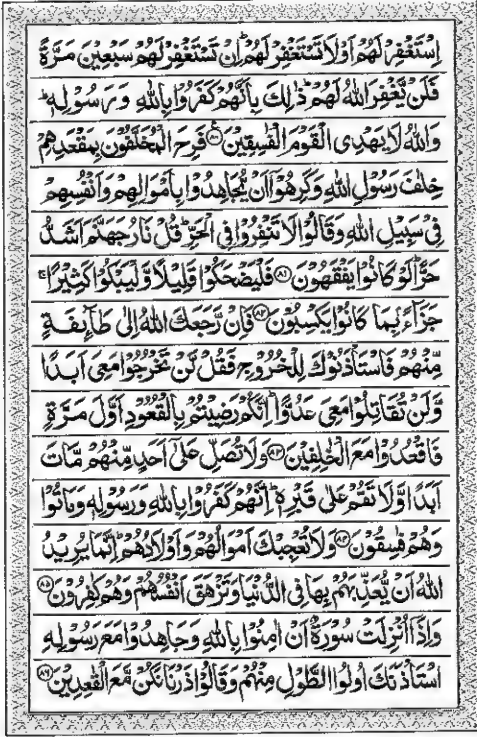 اِسۡتَغۡفِرۡ لَهُمۡ اَوۡ لَا تَسۡتَغۡفِرۡ لَهُمۡ ؕ اِنۡ تَسۡتَغۡفِرۡ لَهُمۡ سَبۡعِيۡنَ مَرَّةً
فَلَنۡ يَّغۡفِرَ اللّٰهُ لَهُمۡ ؕ ذٰلِكَ بِاَنَّهُمۡ كَفَرُوۡا بِاللّٰهِ وَ رَسُوۡلِهٖ ؕ
وَاللّٰهُ لَا يَهۡدِى الۡقَوۡمَ الۡفٰسِقِيۡنَ ﴿۸۰﴾ فَرِحَ الۡمُخَلَّفُوۡنَ بِمَقۡعَدِهِمۡ
خِلٰفَ رَسُوۡلِ اللّٰهِ وَكَرِهُوۡۤا اَنۡ يُّجَاهِدُوۡا بِاَمۡوَالِهِمۡ وَاَنۡفُسِهِمۡ
فِىۡ سَبِيۡلِ اللّٰهِ وَقَالُوۡا لَا تَنۡفِرُوۡا فِى الۡحَـرِّ ؕ قُلۡ نَارُ جَهَـنَّمَ اَشَدُّ
حَرًّا ؕ لَوۡ كَانُوۡا يَفۡقَهُوۡنَ ﴿۸۱﴾ فَلۡيَـضۡحَكُوۡا قَلِيۡلًا وَّلۡيَبۡكُوۡا كَثِيۡرًا ۚ
جَزَآءًۢ بِمَا كَانُوۡا يَكۡسِبُوۡنَ ﴿۸۲﴾ فَاِنۡ رَّجَعَكَ اللّٰهُ اِلٰى طَآٮِٕفَةٍ
مِّنۡهُمۡ فَاسۡتَاۡذَنُوۡكَ لِلۡخُرُوۡجِ فَقُلْ لَّنۡ تَخۡرُجُوۡا مَعِىَ اَبَدًا
وَّلَنۡ تُقَاتِلُوۡا مَعِىَ عَدُوًّا ؕ اِنَّكُمۡ رَضِيۡتُمۡ بِالۡقُعُوۡدِ اَوَّلَ مَرَّةٍ
فَاقۡعُدُوۡا مَعَ الۡخٰلِفِيۡنَ ﴿۸۳﴾ وَلَا تُصَلِّ عَلٰٓى اَحَدٍ مِّنۡهُمۡ مَّاتَ
اَبَدًا وَّلَا تَقُمۡ عَلٰى قَبۡرِهٖ ؕ اِنَّهُمۡ كَفَرُوۡا بِاللّٰهِ وَرَسُوۡلِهٖ وَمَاتُوۡا
وَهُمۡ فٰسِقُوۡنَ ﴿۸۴﴾ وَلَا تُعۡجِبۡكَ اَمۡوَالُهُمۡ وَاَوۡلَادُهُمۡ ؕ اِنَّمَا يُرِيۡدُ
اللّٰهُ اَنۡ يُّعَذِّبَهُمۡ بِهَا فِى الدُّنۡيَا وَتَزۡهَقَ اَنۡفُسُهُمۡ وَهُمۡ كٰفِرُوۡنَ ﴿۸۵﴾
وَاِذَاۤ اُنۡزِلَتۡ سُوۡرَةٌ اَنۡ اٰمِنُوۡا بِاللّٰهِ وَجَاهِدُوۡا مَعَ رَسُوۡلِهِ
اسۡتَاۡذَنَكَ اُولُوا الطَّوۡلِ مِنۡهُمۡ وَقَالُوۡا ذَرۡنَا نَكُنۡ مَّعَ الۡقٰعِدِيۡنَ ﴿۸۶﴾